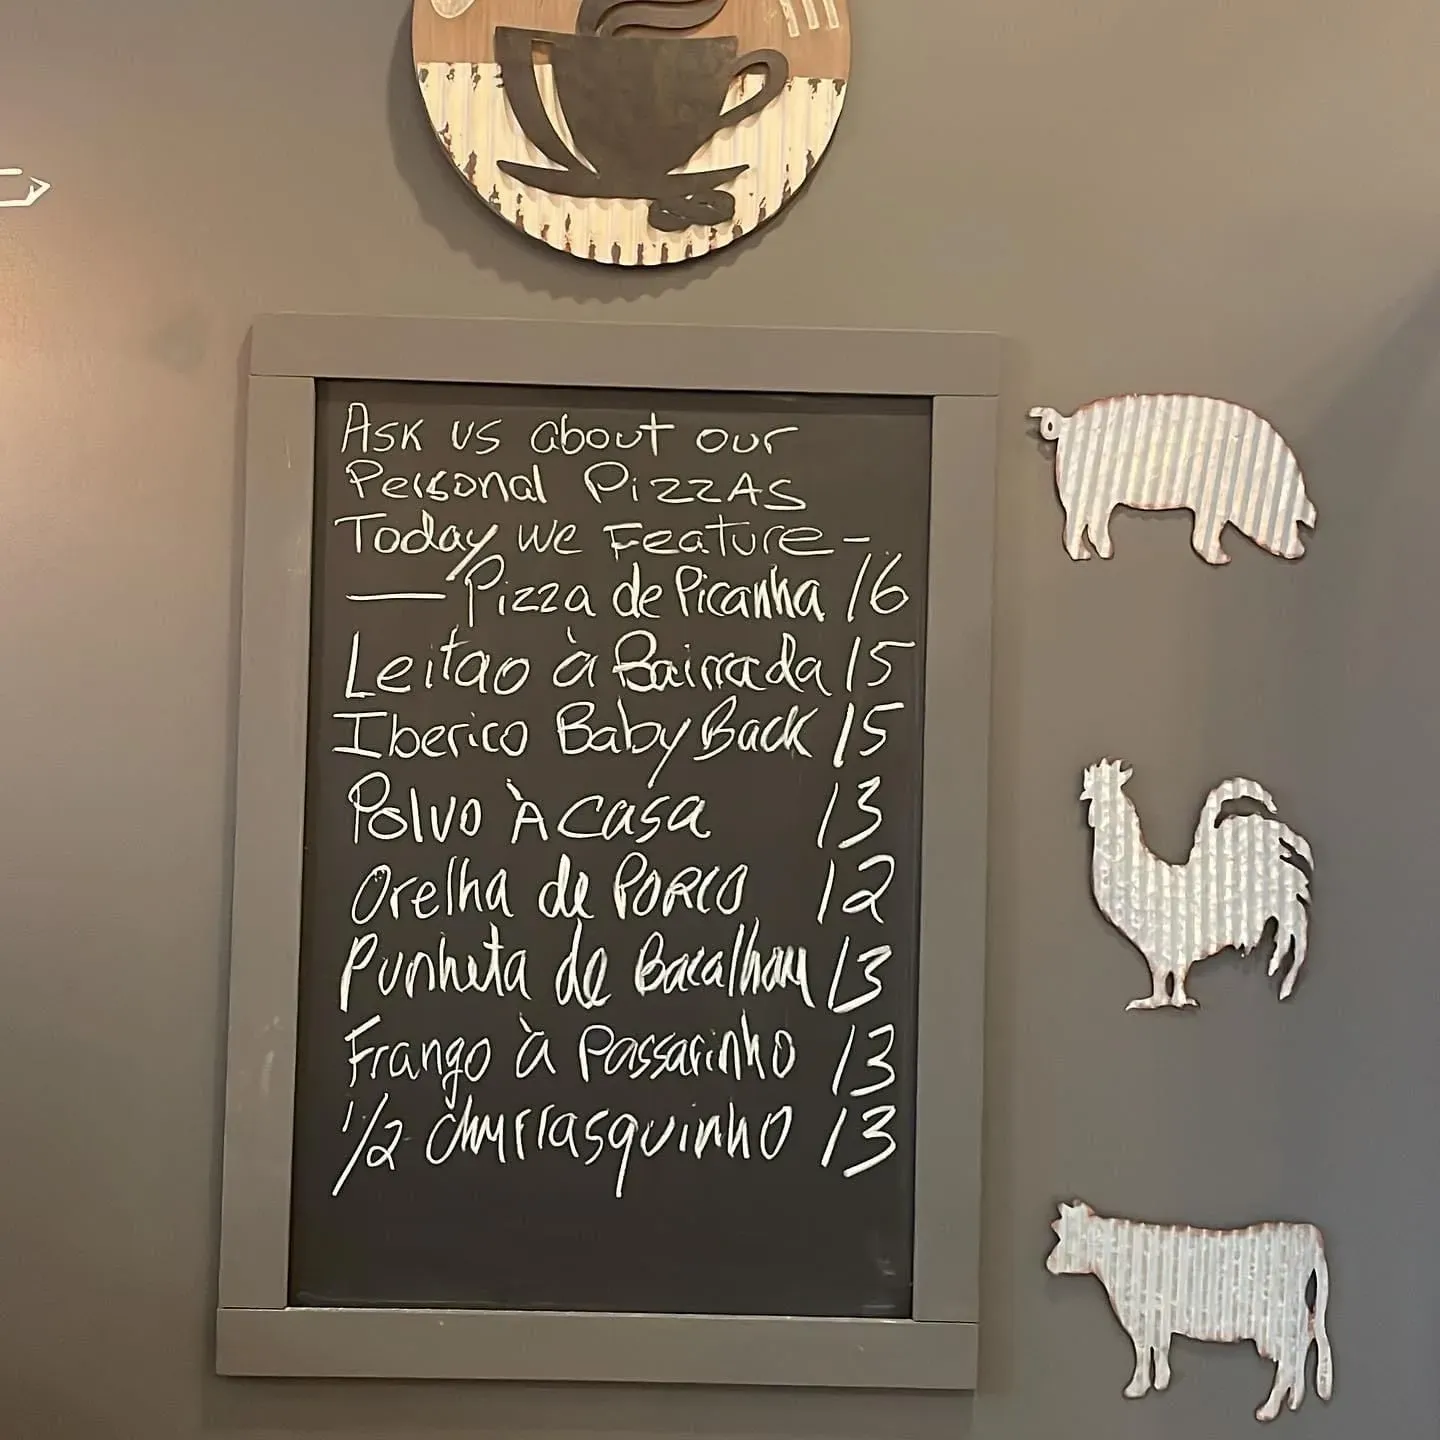 Ask us about our
Personal PizzAs
Today we Feature -
— Pizza de Picanha 16
Leitao à Bairrada 15
Iberico Baby Back 15
Polvo À casa 13
Orelha de Porco 12
Punheta de Bacalhau 13
Frango à Passarinho 13
1/2 churrasquinho 13